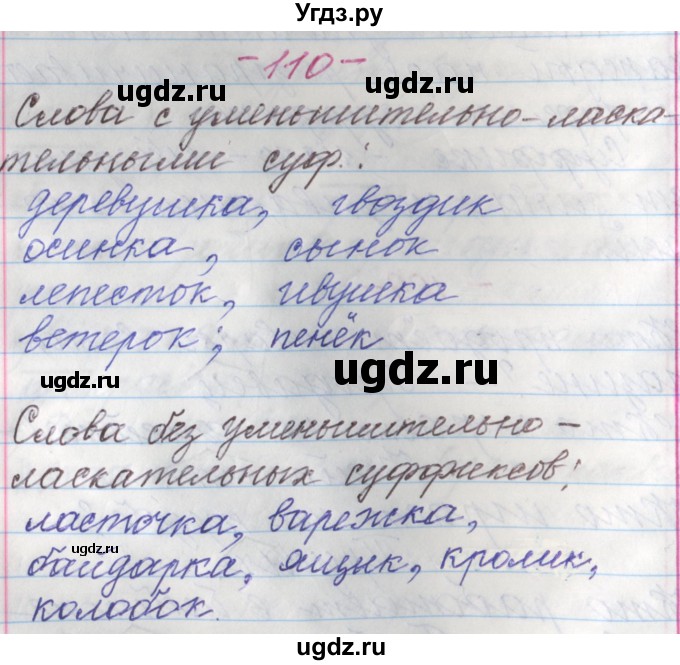 Угдз.ру
-110-
ugdz.ru
ugdz.ru
Слова с уменьшительно-ласка-
тельными суф.:
деревушка, гвоздик
осинка, сынок
ugdz.ru
лепесток, ивушка
ветерок; пенёк
ugdz.ru
ugdz.ru
Слова без уменьшительно-
ласкательных суффиксов:
ласточка, варежка,
ugdz.ru
байдарка, ящик, кролик,
ugdz.ru
колобок.
ugdz.ru